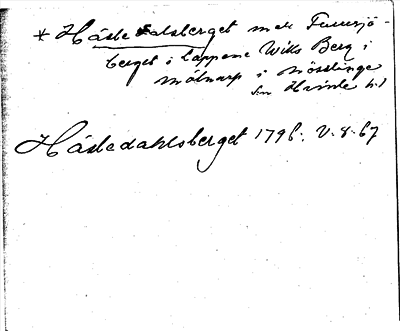 * Håstedalsberget med Furusjö-
berget i Lappene Wills Berg i
Mölnarp i Nösslinge
sn Himle hd
Håstedahlsberget 1796: V. 8. 67